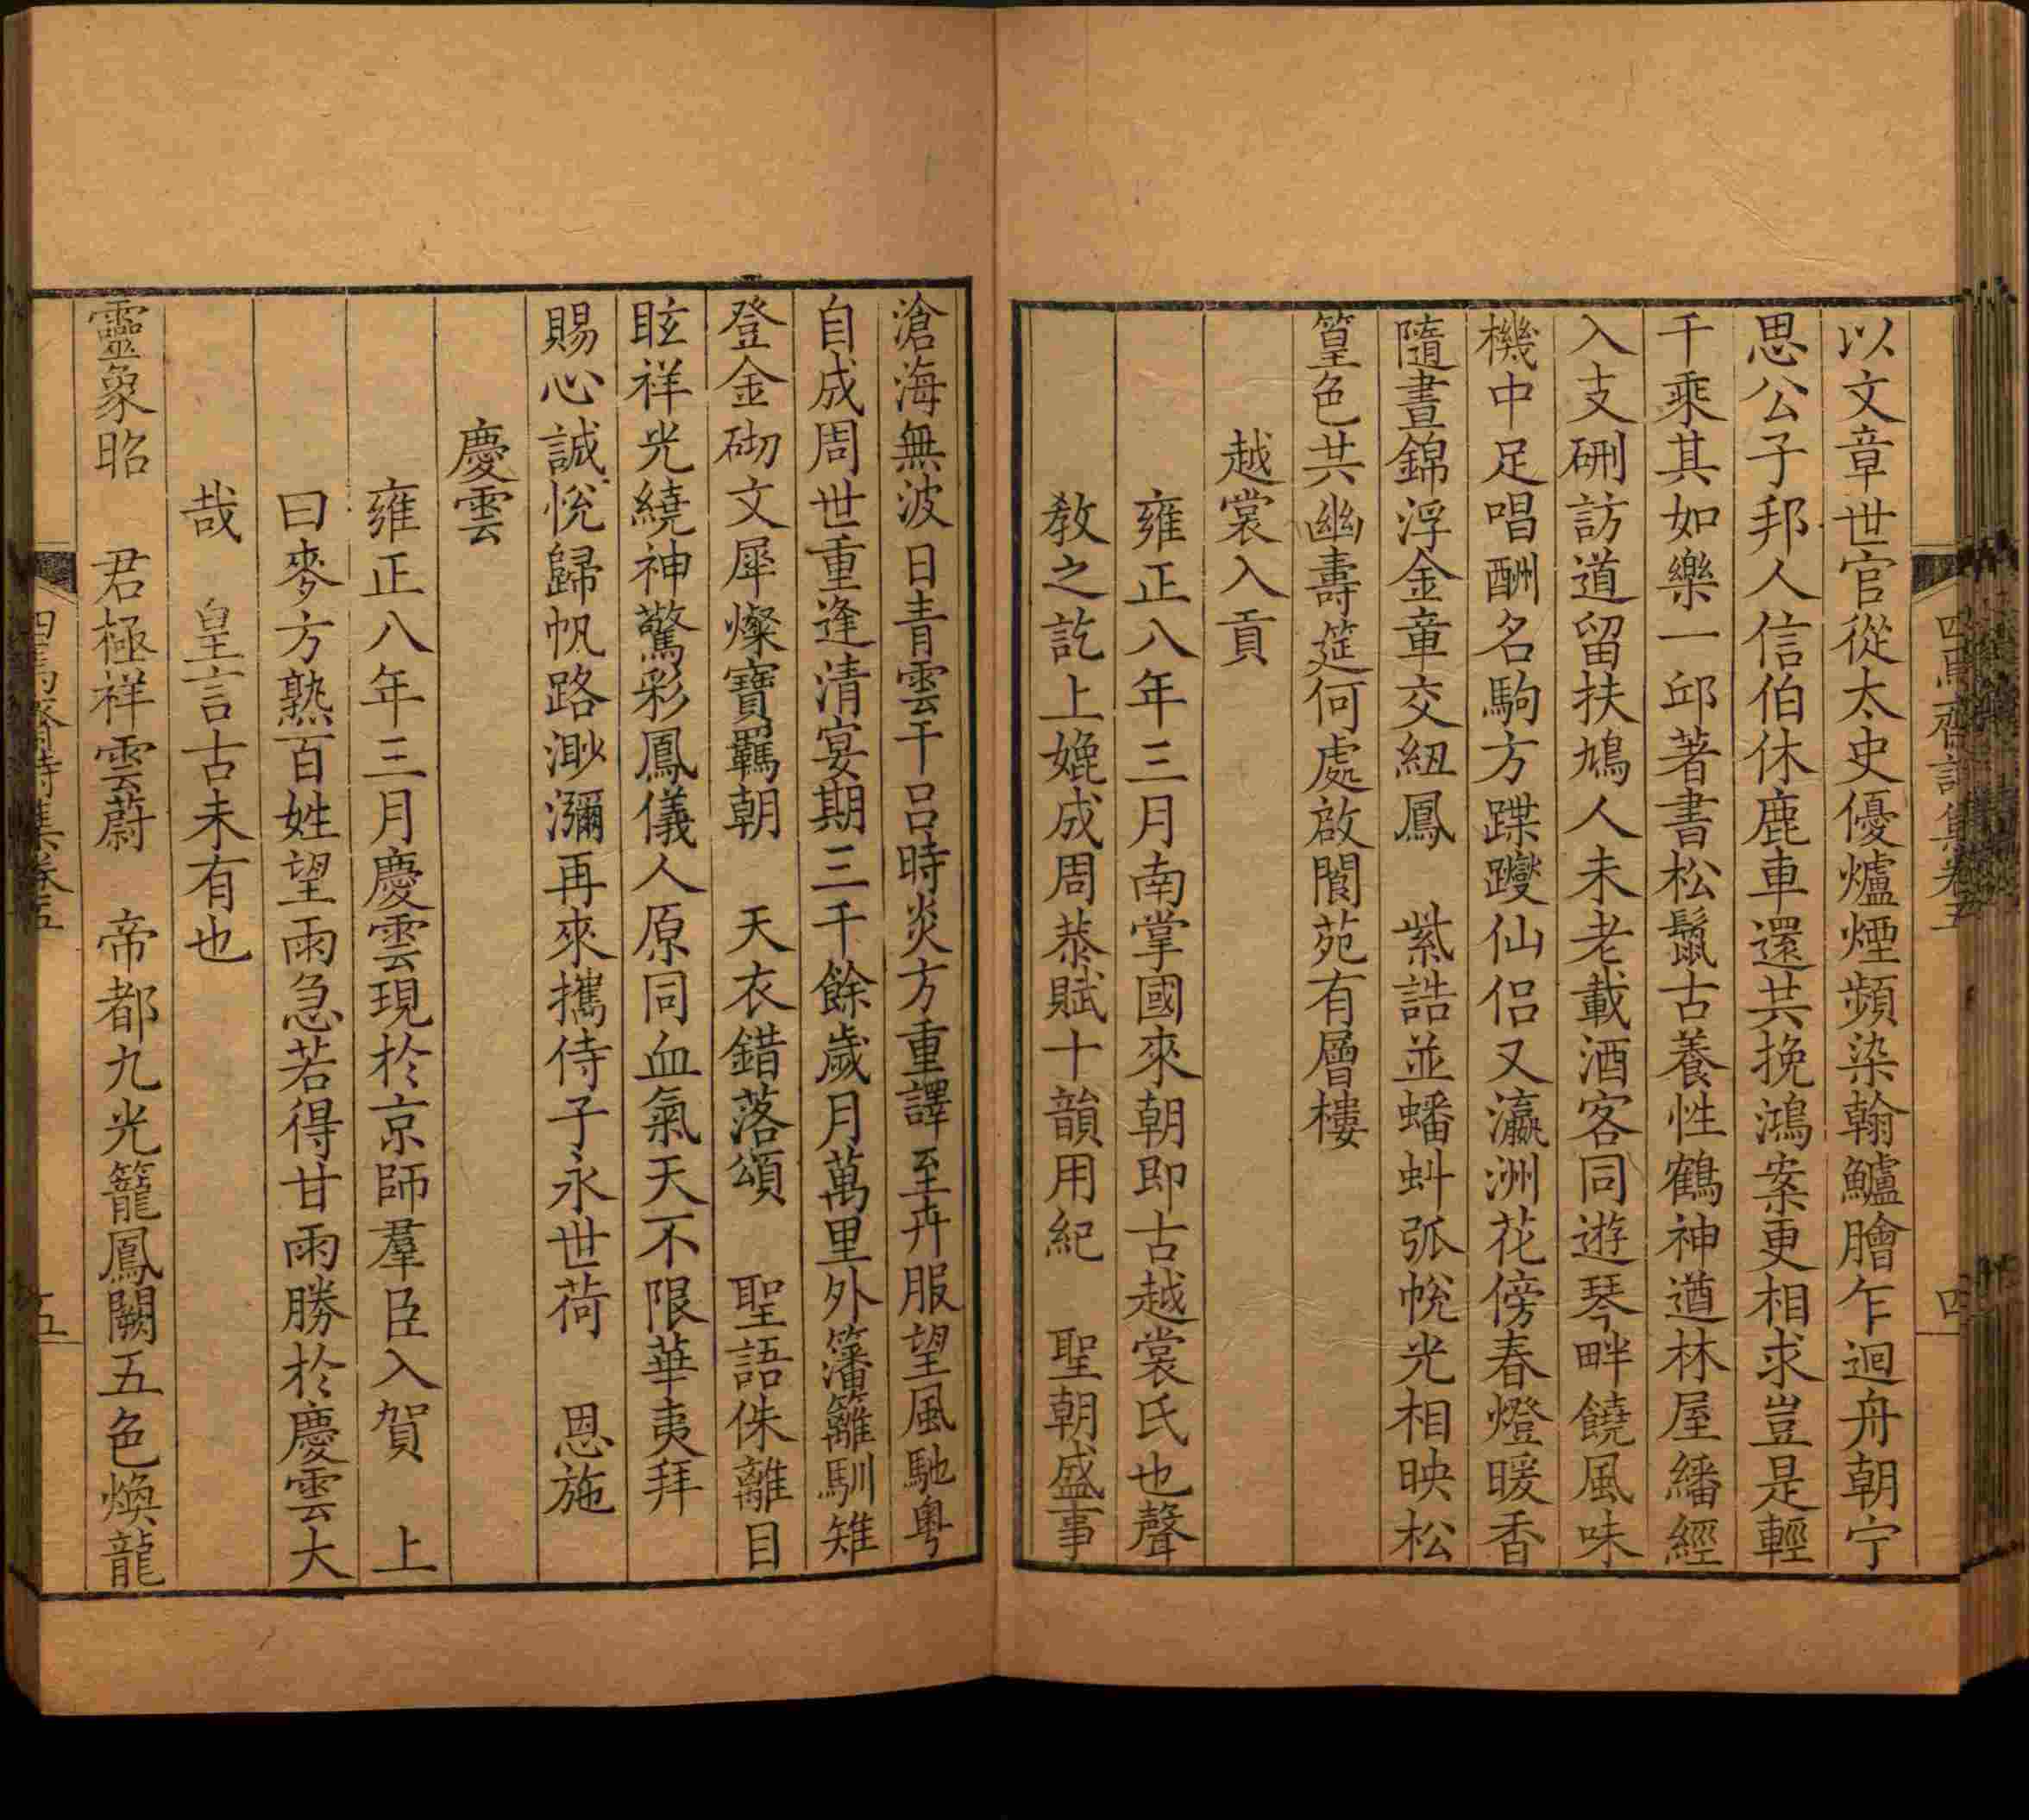 以文章世官從太史優爐煙頻染翰鱸膾乍迴舟朝宁
思公子邦人信伯休鹿車還共挽鴻案更相求豈是輕
千乘其如樂一邱著書松鬣古養性鶴神遒林屋繙經
入支硎訪道留扶鳩人未老載酒客同遊琴畔饒風味
機中足唱酬名駒方蹀躞仙侣又瀛洲花傍春燈暖香
隨晝錦浮金章交紐鳳 紫誥並蟠蚪弧帨光相映松
篁色共幽壽筵何處啟閬苑有層樓
越裳入貢
雍正八年三月南掌國來朝即古越裳氏也聲
教之訖上媲成周恭賦十韻用紀 聖朝盛事
滄海無波日青雲干吕時炎方重譯至卉服望風馳粤
自成周世重逢清宴期三千餘歲月萬里外籓籬馴雉
登金砌文犀燦寶羈朝 天衣錯落頌 聖語侏離目
眩祥光繞神驚彩鳳儀人原同血氣天不限華夷拜
賜心誠悅歸帆路渺瀰再來攜侍子永世荷 恩施
慶雲
雍正八年三月慶雲現於京師羣臣入賀 上
曰麥方熟百姓望雨急若得甘雨勝於慶雲大
哉 皇言古未有也
靈象昭 君極祥雲蔚 帝都九光籠鳳闕五色煥龍
四焉齋詩集卷五
四
五